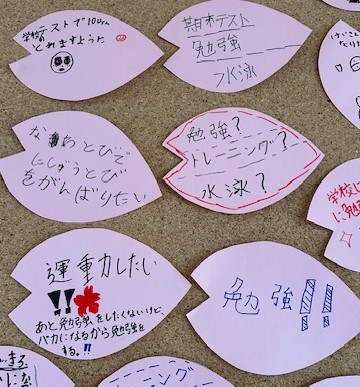 学校のテストで100てん
とれますように
期末テスト
勉強
水泳
なわとびで
にじゅうとび
をがんばりたい
勉強?
トレーニング?
水泳?
運動したい
!!
あと勉強をしたくないけど、
バカになるから勉強を
する。!!
勉強!!
学校
に勉
トレーニング